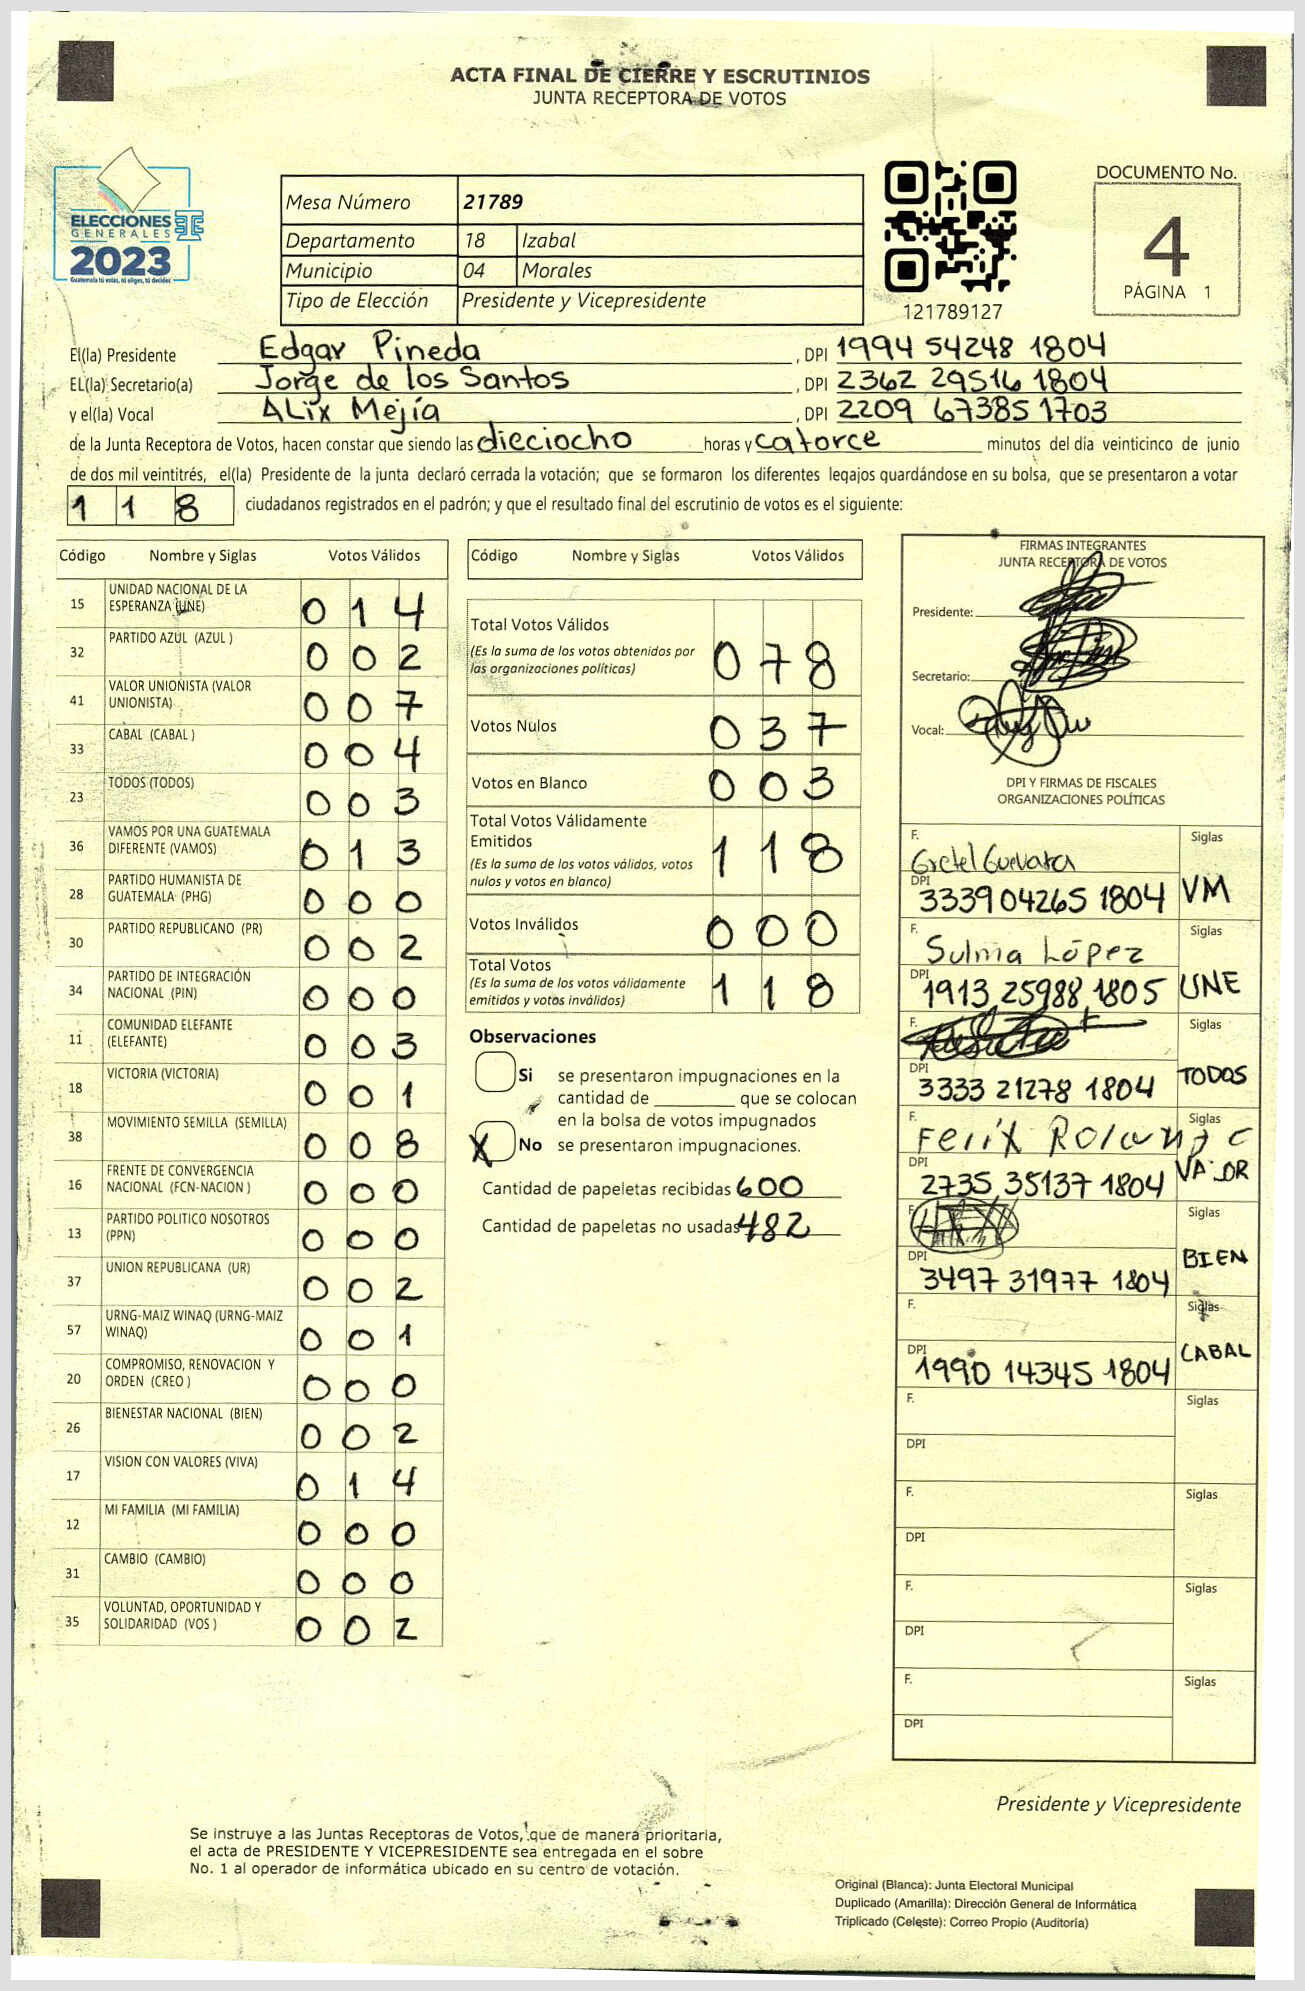 ACTA FINAL DE CIERRE Y ESCRUTINIOS
JUNTA RECEPTORA DE VOTOS
ELECCIONES
GENERALES
2023
Guatemala tú votas, tú eliges, tú decides
Mesa Número 21789
Departamento 18 Izabal
Municipio 04 Morales
Tipo de Elección Presidente y Vicepresidente
121789127
DOCUMENTO No.
4
PÁGINA 1
El(la) Presidente Edgar Pineda , DPI 1994 54248 1804
EL(la) Secretario(a) Jorge de los Santos , DPI 2362 29516 1804
y el(la) Vocal ALix Mejía , DPI 2209 67385 1703
de la Junta Receptora de Votos, hacen constar que siendo las dieciocho horas y catorce minutos del día veinticinco de junio
de dos mil veintitrés, el(la) Presidente de la junta declaró cerrada la votación; que se formaron los diferentes legajos quardándose en su bolsa, que se presentaron a votar
1 1 8 ciudadanos registrados en el padrón; y que el resultado final del escrutinio de votos es el siguiente:
Código Nombre y Siglas Votos Válidos
15 UNIDAD NACIONAL DE LA ESPERANZA (UNE) 0 1 4
32 PARTIDO AZUL (AZUL ) 0 0 2
41 VALOR UNIONISTA (VALOR UNIONISTA) 0 0 7
33 CABAL (CABAL ) 0 0 4
23 TODOS (TODOS) 0 0 3
36 VAMOS POR UNA GUATEMALA DIFERENTE (VAMOS) 0 1 3
28 PARTIDO HUMANISTA DE GUATEMALA (PHG) 0 0 0
30 PARTIDO REPUBLICANO (PR) 0 0 2
34 PARTIDO DE INTEGRACIÓN NACIONAL (PIN) 0 0 0
11 COMUNIDAD ELEFANTE (ELEFANTE) 0 0 3
18 VICTORIA (VICTORIA) 0 0 1
38 MOVIMIENTO SEMILLA (SEMILLA) 0 0 8
16 FRENTE DE CONVERGENCIA NACIONAL (FCN-NACION ) 0 0 0
13 PARTIDO POLITICO NOSOTROS (PPN) 0 0 0
37 UNION REPUBLICANA (UR) 0 0 2
57 URNG-MAIZ WINAQ (URNG-MAIZ WINAQ) 0 0 1
20 COMPROMISO, RENOVACION Y ORDEN (CREO ) 0 0 0
26 BIENESTAR NACIONAL (BIEN) 0 0 2
17 VISION CON VALORES (VIVA) 0 1 4
12 MI FAMILIA (MI FAMILIA) 0 0 0
31 CAMBIO (CAMBIO) 0 0 0
35 VOLUNTAD, OPORTUNIDAD Y SOLIDARIDAD (VOS ) 0 0 2
Código Nombre y Siglas Votos Válidos
Total Votos Válidos 0 7 8
(Es la suma de los votos obtenidos por
las organizaciones políticas)
Votos Nulos 0 3 7
Votos en Blanco 0 0 3
Total Votos Válidamente
Emitidos 1 1 8
(Es la suma de los votos válidos, votos
nulos y votos en blanco)
Votos Inválidos 0 0 0
Total Votos 1 1 8
(Es la suma de los votos válidamente
emitidos y votos inválidos)
Observaciones
Si se presentaron impugnaciones en la
cantidad de ________ que se colocan
en la bolsa de votos impugnados
X No se presentaron impugnaciones.
Cantidad de papeletas recibidas 600
Cantidad de papeletas no usadas 482
FIRMAS INTEGRANTES
JUNTA RECEPTORA DE VOTOS
Presidente:
Secretario:
Vocal:
DPI Y FIRMAS DE FISCALES
ORGANIZACIONES POLÍTICAS
F. Gretel Guevara Siglas
DPI 3339 04265 1804 VM
F. Sulma López Siglas
DPI 1913 25988 1805 UNE
F. Siglas
DPI 3333 21278 1804 TODOS
F. Felix Siglas
DPI 2735 35137 1804 VALOR
F. Siglas
DPI 3497 31977 1804 BIEN
F. Siglas
DPI 1990 14345 1804 CABAL
F. Siglas
DPI
F. Siglas
DPI
F. Siglas
DPI
F. Siglas
DPI
Presidente y Vicepresidente
Se instruye a las Juntas Receptoras de Votos, que de manera prioritaria,
el acta de PRESIDENTE Y VICEPRESIDENTE sea entregada en el sobre
No. 1 al operador de informática ubicado en su centro de votación.
Original (Blanca): Junta Electoral Municipal
Duplicado (Amarilla): Dirección General de Informática
Triplicado (Celeste): Correo Propio (Auditoría)